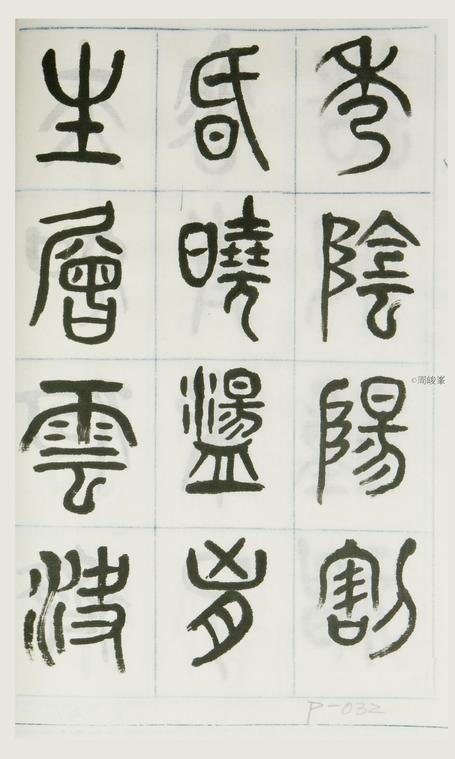 秀陰陽割
昏曉盪胸
生層雲決
©周峻峯
P-032